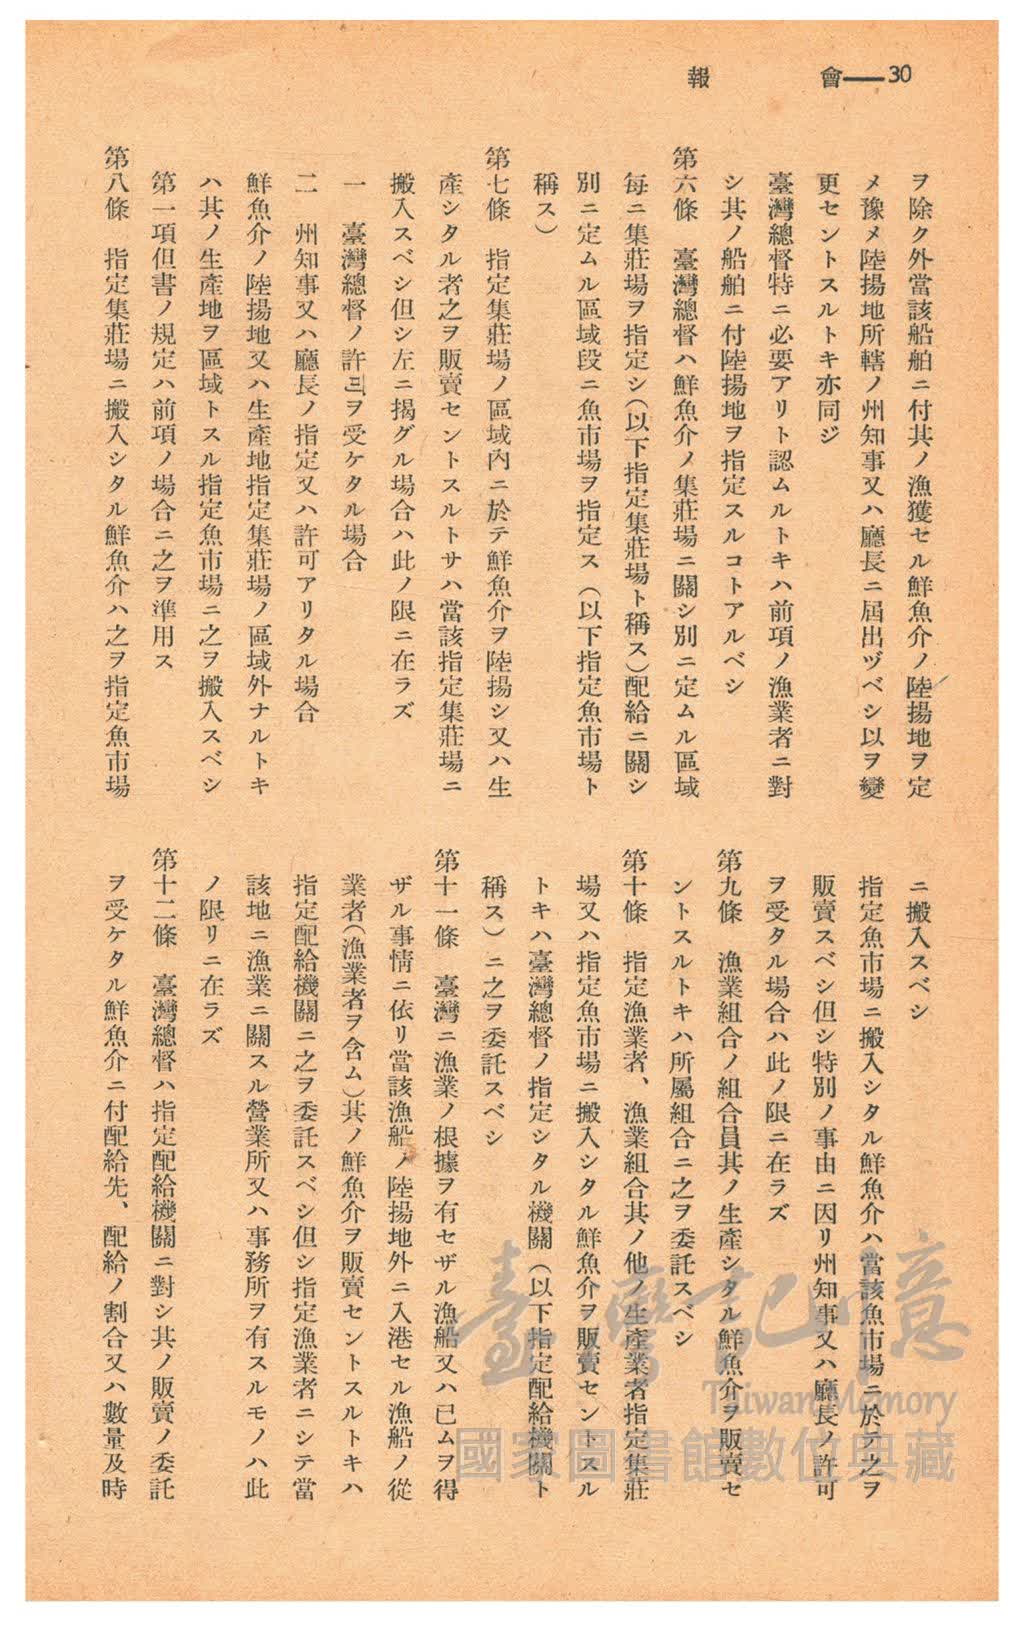 報　會――30
ヲ除ク外當該船舶ニ付其ノ漁獲セル鮮魚介ノ陸揚地ヲ定
メ豫メ陸揚地所轄ノ州知事又ハ廳長ニ屆出ヅベシ以ヲ變
更セントスルトキ亦同ジ
臺灣總督特ニ必要アリト認ムルトキハ前項ノ漁業者ニ對
シ其ノ船舶ニ付陸揚地ヲ指定スルコトアルベシ
第六條　臺灣總督ハ鮮魚介ノ集莊場ニ關シ別ニ定ムル區域
每ニ集莊場ヲ指定シ(以下指定集莊場ト稱ス)配給ニ關シ
別ニ定ムル區域段ニ魚市場ヲ指定ス(以下指定魚市場ト
稱ス)
第七條　指定集莊場ノ區域內ニ於テ鮮魚介ヲ陸揚シ又ハ生
產シタル者之ヲ販賣セントスルトサハ當該指定集莊場ニ
搬入スベシ但シ左ニ揭グル場合ハ此ノ限ニ在ラズ
一　臺灣總督ノ許ヲ受ケタル場合
二　州知事又ハ廳長ノ指定又ハ許可アリタル場合
鮮魚介ノ陸揚地又ハ生產地指定集莊場ノ區域外ナルトキ
ハ其ノ生產地ヲ區域トスル指定魚市場ニ之ヲ搬入スベシ
第一項但書ノ規定ハ前項ノ場合ニ之ヲ準用ス
第八條　指定集莊場ニ搬入シタル鮮魚介ハ之ヲ指定魚市場
ニ搬入スベシ
指定魚市場ニ搬入シタル鮮魚介ハ當該魚市場ニ於テ之ヲ
販賣スベシ但シ特別ノ事由ニ因リ州知事又ハ廳長ノ許可
ヲ受タル場合ハ此ノ限ニ在ラズ
第九條　漁業組合ノ組合員其ノ生產シタル鮮魚介ヲ販賣セ
ントスルトキハ所屬組合ニ之ヲ委託スベシ
第十條　指定漁業者、漁業組合其ノ他ノ生產業者指定集莊
場又ハ指定魚市場ニ搬入シタル鮮魚介ヲ販賣セントスル
トキハ臺灣總督ノ指定シタル機關(以下指定配給機關ト
稱ス)ニ之ヲ委託スベシ
第十一條　臺灣ニ漁業ノ根據ヲ有セザル漁船又ハ已ムヲ得
ザル事情ニ依リ當該漁船ノ陸揚地外ニ入港セル漁船ノ從
業者(漁業者ヲ含ム)其ノ鮮魚介ヲ販賣セントスルトキハ
指定配給機關ニ之ヲ委託スベシ但シ指定漁業者ニシテ當
該地ニ漁業ニ關スル營業所又ハ事務所ヲ有スルモノハ此
ノ限リニ在ラズ
第十二條　臺灣總督ハ指定配給機關ニ對シ其ノ販賣ノ委託
ヲ受ケタル鮮魚介ニ付配給先、配給ノ割合又ハ數量及時
臺灣記憶
Taiwan Memory
國家圖書館數位典藏